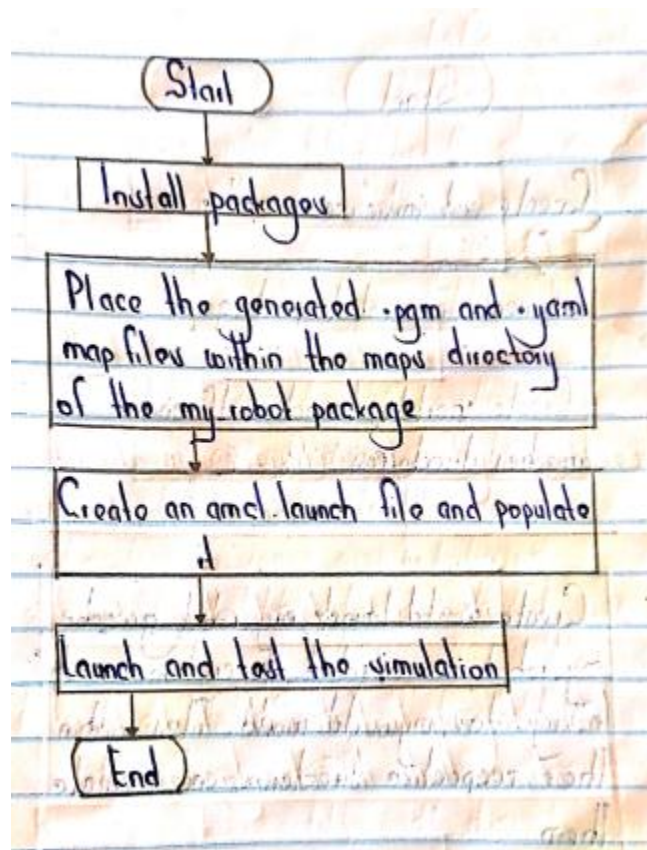 Start
Install packages
Place the generated .pgm and .yaml
map files within the maps directory
of the my_robot package
Create an amcl.launch file and populate
it
Launch and test the simulation
End